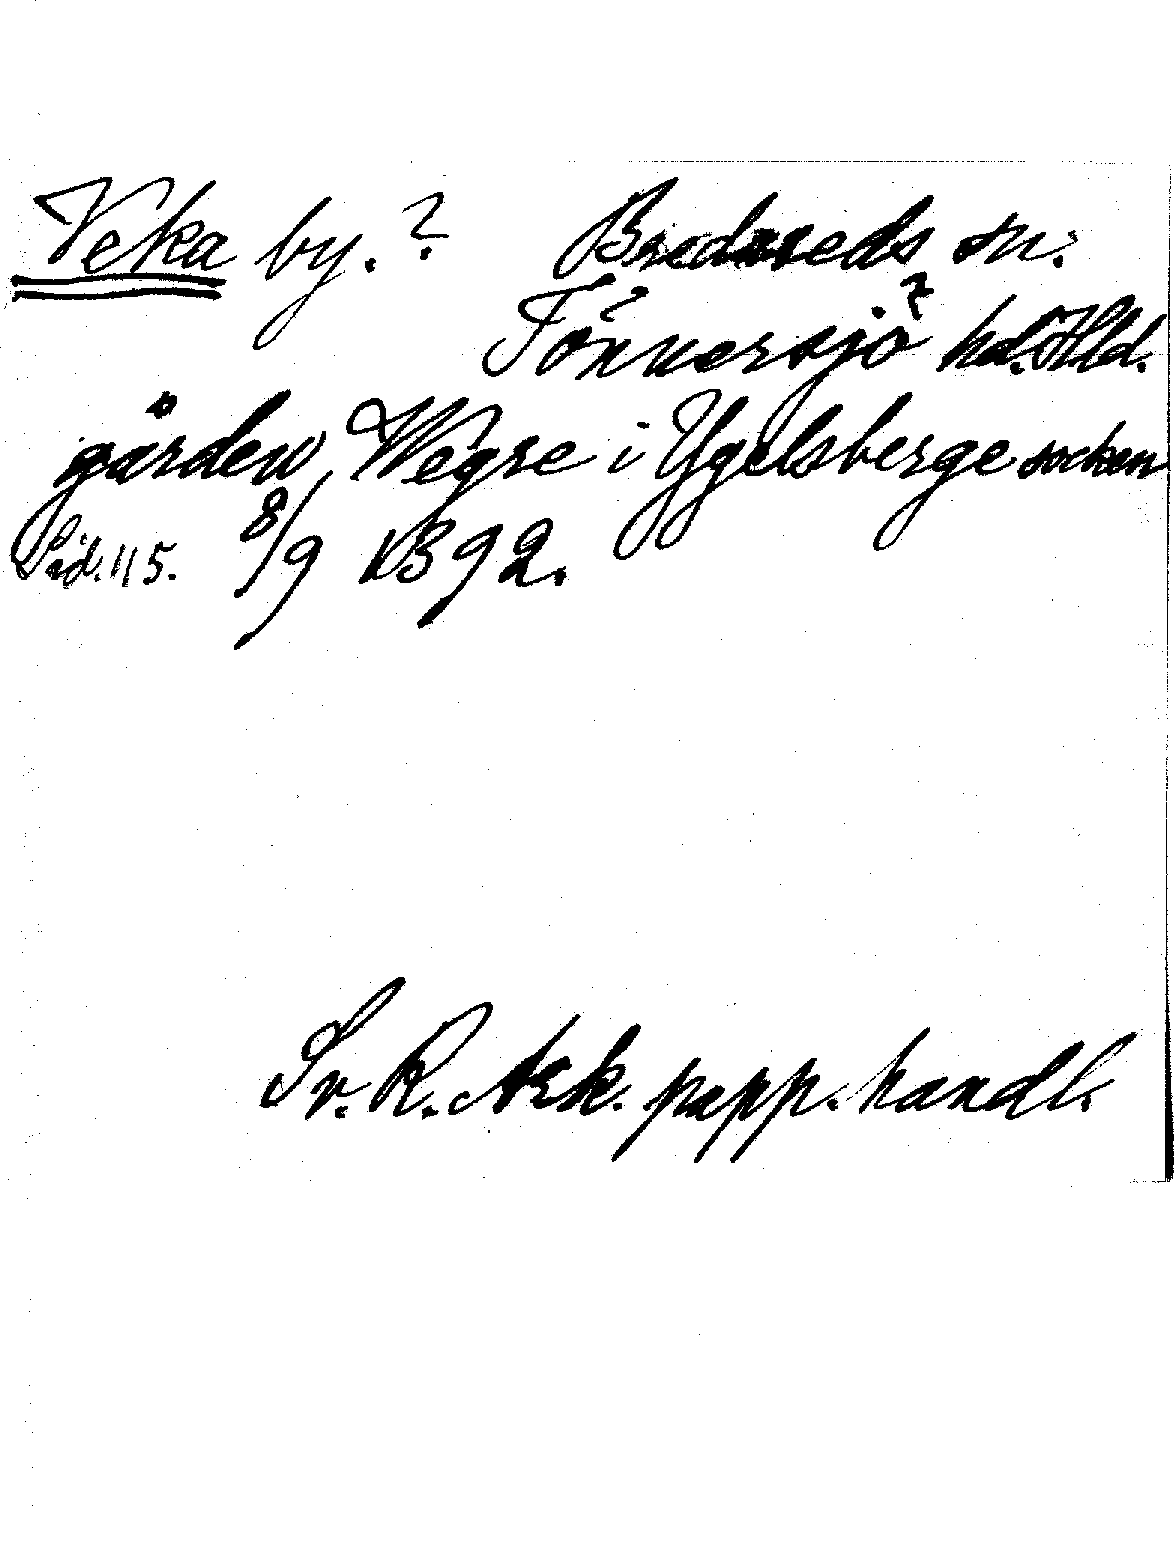 Veka by. ? Bredareds sn. ?
Tönnersjö ? hd. Hld.
gården Wegre i Ygelsberge socken
Sid. 115. 8/9 1392.
Sv. R. Ark. papp. handl.